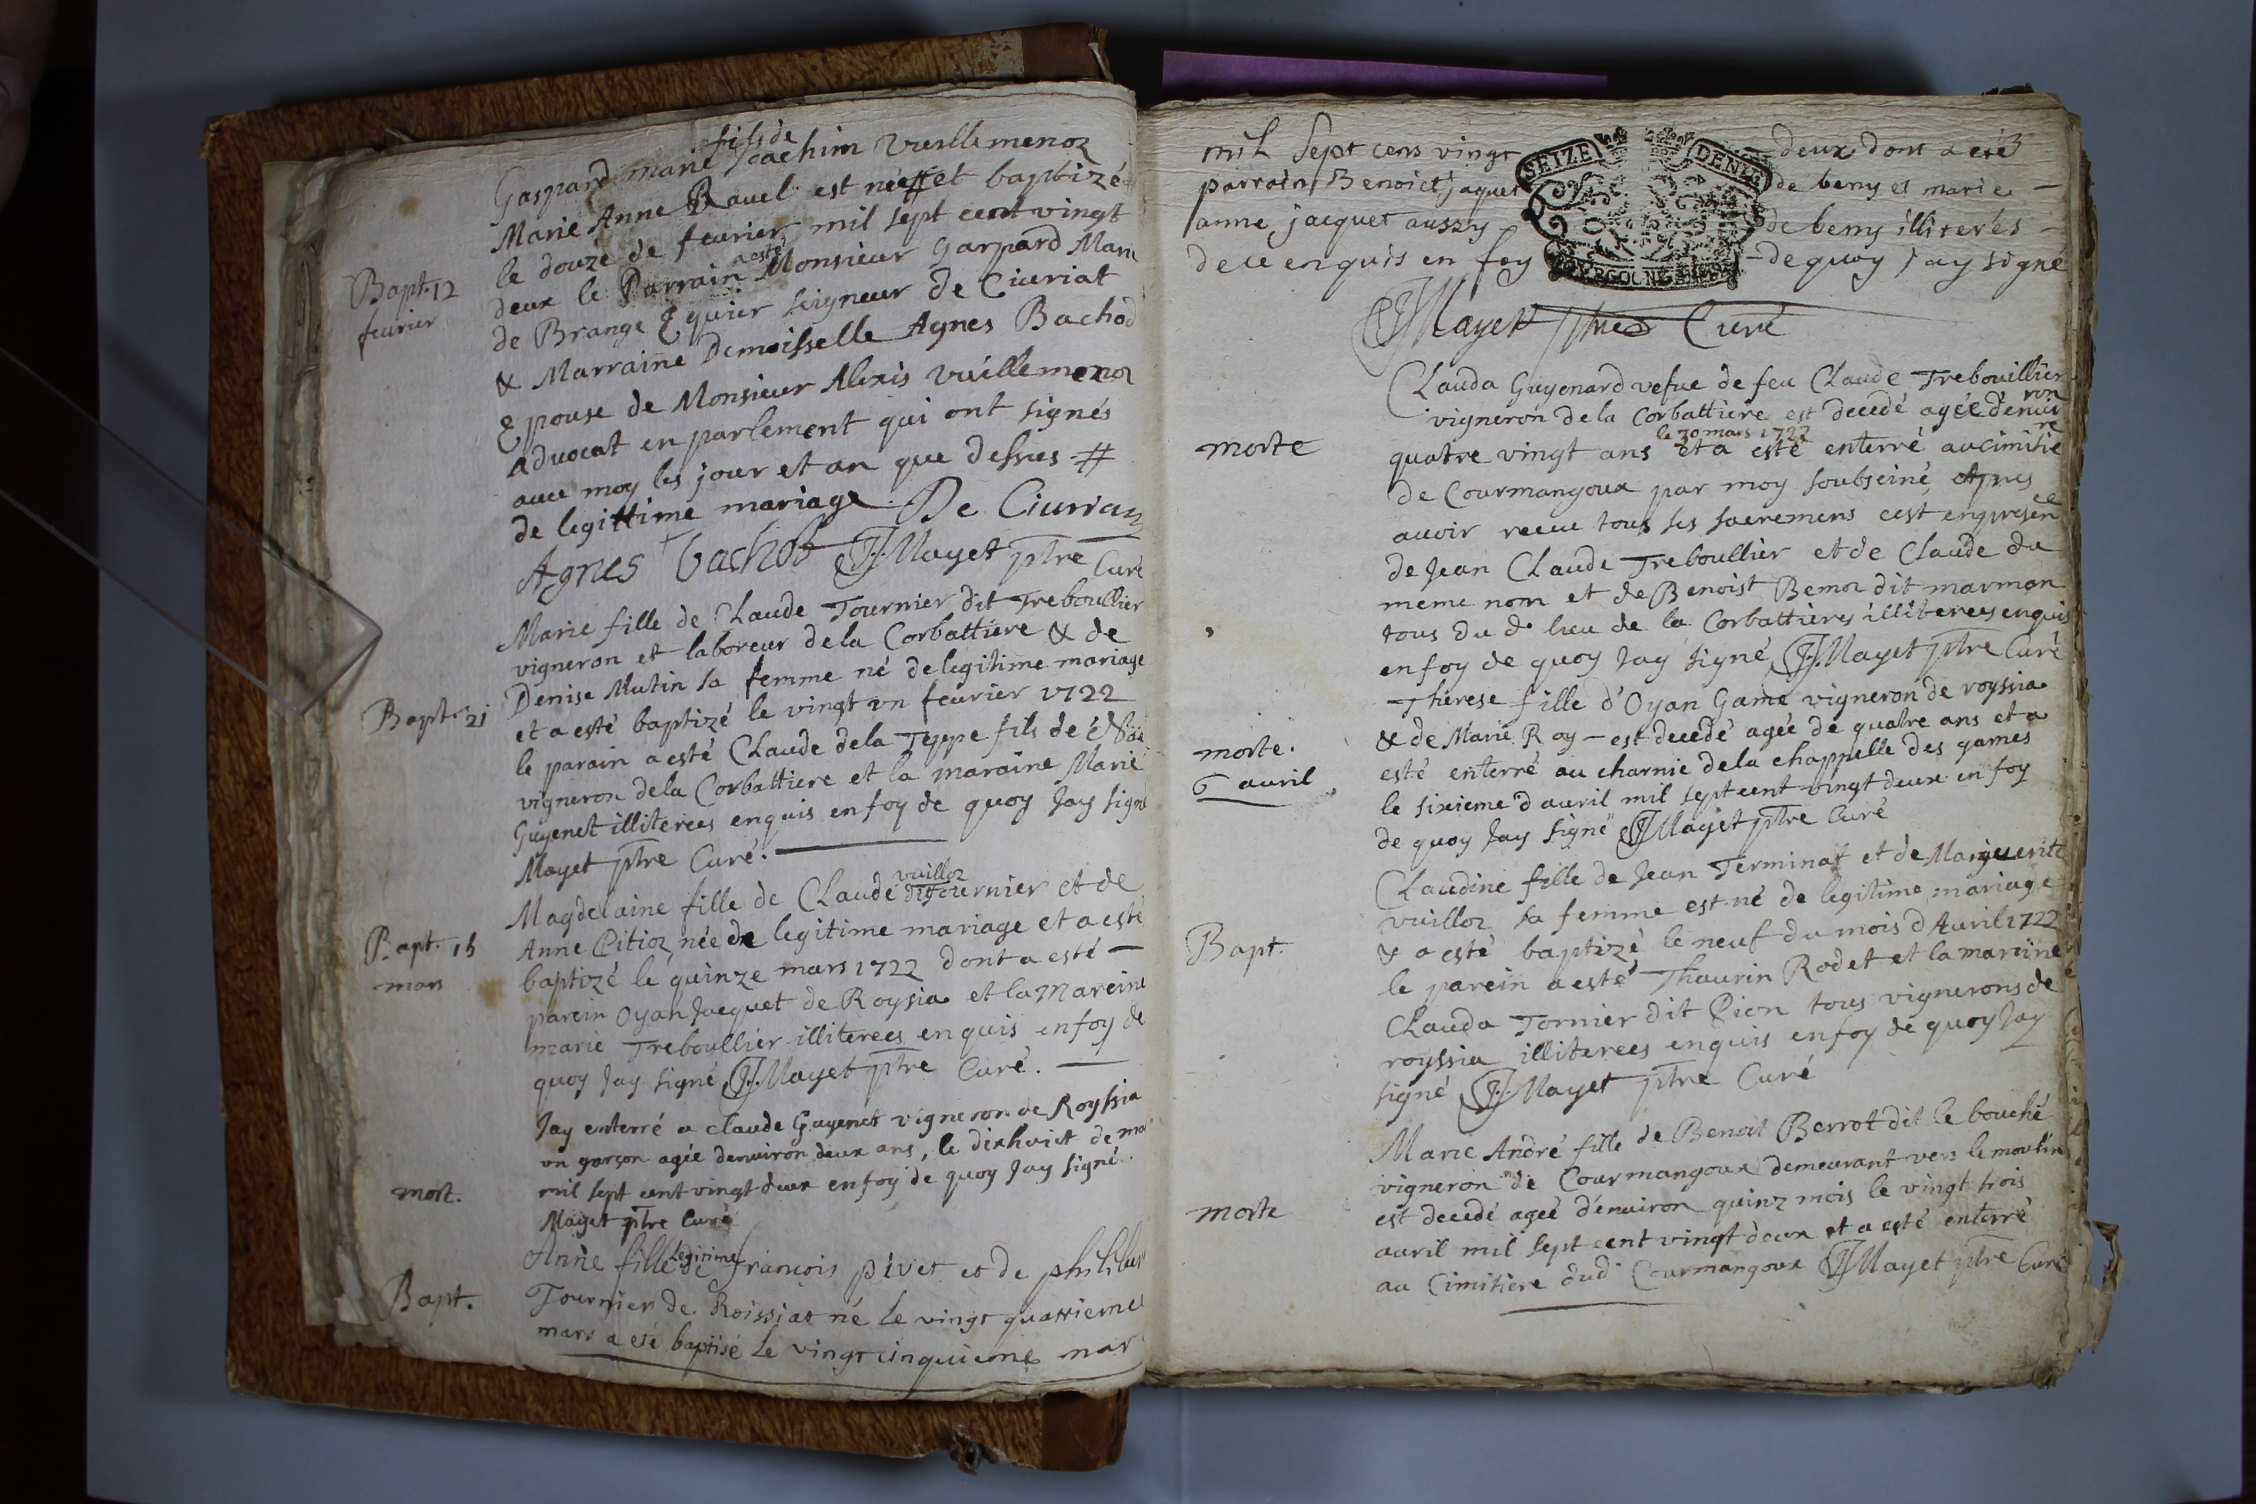 fils de
Gaspard marie Joachim Vuillemenoz
Marie Anne Ravel est née # et baptizé
le douze de feurier mil sept cent vingt
a esté
deux le Parrain Monsieur Gaspard Marie
Bapt. 12
feurier
de Brange Equier seigneur de Ciuriat
& Marraine Demoisselle Agnes Bachod
Epouse de Monsieur Alexis Vuillemenoz
aduocat en parlement qui ont signés
auec moy les jour et an que dessus #
de legittime mariage. De Ciuriat
Agnes bachod JJ Mayet ptre Curé
Marie fille de Claude Tournier dit Treboullier
vigneron et laboreur de la Corbattiere & de
Denise Mutin sa femme né de legitime mariage
Bapt. 21
et a esté baptizé le vingt vn feurier 1722
le parain a esté Claude dela Teppe fils de
vigneron dela Corbattiere et la maraine Marie
Guyenet illiterees enquis en foy de quoy Jay signé
Mayet ptre Curé.
vuilloz
Magdelaine fille de Claude dit Tournier et de
Bapt. 15
mars
Anne Pitioz née de legitime mariage et a esté
baptizé le quinze mars 1722 dont a esté
parein Oyan Jacquet de Roysia et la Mareine
marie Treboullier illiterees enquis en foy de
quoy Jay signé JJ Mayet ptre Curé.
Jay enterré a claude Guyenet vigneron de Royssia
vn garçon agée denuiron deux ans, le dixhuict de mar
mort.
mil sept cent vingt deux en foy de quoy Jay signé.
Mayet ptre Curé
Legitime
Anne fille de françois pivet et de philibert
Bapt.
Tournier de Roissiat né le vingt quatrieme
mars a eté baptisé le vingt cinquieme mar
3
mil Sept cens vingt deux dont a eté
parrain Benoict jaquet de beny et marie
anne jacquet aussy de beny illiterés
de ce enquis en foy de quoy jay signé
SEIZE DENIE
BOURGOGNE
JJ Mayet ptre Curé
Clauda Guyenard vefue de feu Claude Trebouillier
vigneron de la Corbattiere est decedé agée d'enuiron
le 30 mars 1722
morte
quatre vingt ans et a esté enterré au cimitiere
de Courmangoux par moy soubseiné, Apres
auoir receu tous ses sacremens cest en presence
de Jean Claude Treboullier et de Claude du
meme nom et de Benoist Bemoz dit marmon
tous du d. lieu de la Corbattieres illiterees enquis
en foy de quoy Jay signé JJ Mayet ptre Curé
Therese fille d'Oyan Game vigneron de royssia
& de Marie Roy est decedé agée de quatre ans et a
morte.
6 auril
esté enterré au charnie dela chappelle des games
le sixieme d'auril mil sept cent vingt deux en foy
de quoy Jay signé JJ Mayet ptre Curé
Claudine fille de Jean Terminat et de Marguerite
Bapt.
vuilloz sa femme est né de legitime mariage
& a esté baptizé le neuf du mois d'Auril 1722
le parein a esté Thaurin Rodet et la mareine
Clauda Tornier dit Pion tous vignerons de
royssia illiterees enquis en foy de quoy Jay
signé JJ Mayet ptre Curé
Marie André fille de Benoit Berrot dit le bouché
vigneron de Courmangoux demeurant vers le moulin
morte
est decedé ageé d'enuiron quinz mois le vingt trois
auril mil sept cent vingt deux et a esté enterré
au Cimitiere dud. Courmangoux JJ Mayet ptre Curé